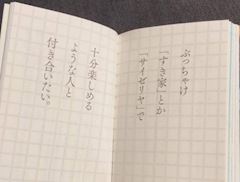 ぶっちゃけ
「すき家」とか
「サイゼリヤ」で
十分楽しめる
ような人と
付き合いたい。